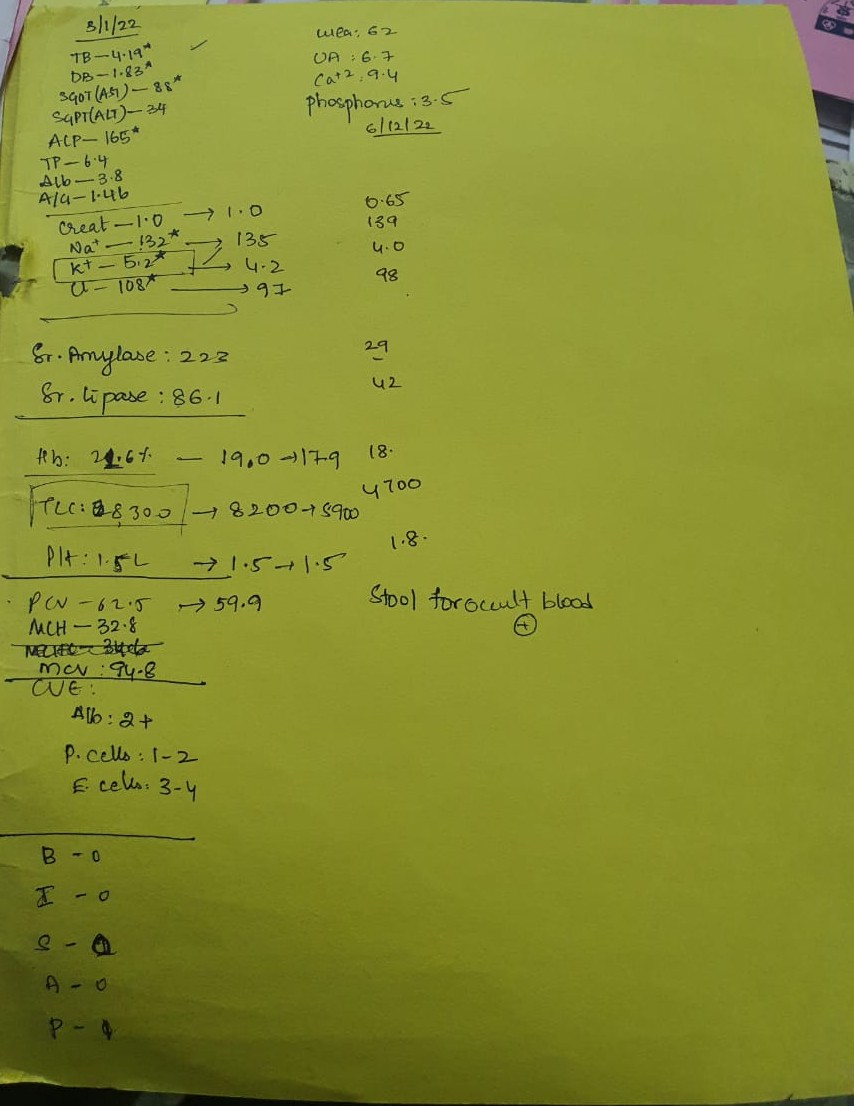 3/1/22
TB-4.19*
DB-1.83*
SGOT(AST)-88*
SGPT(ALT)-34
ALP-165*
TP-6.4
Alb-3.8
A/G-1.46
urea: 62
UA: 6.7
Ca+2: 9.4
phosphorus: 3.5
6/12/22
Creat-1.0 → 1.0 0.65
Na+ - 132* → 135 139
K+ - 5.2* → 4.2 4.0
Cl - 108* → 97 98
Sr. Amylase: 223 29
Sr. lipase: 86.1 42
Hb: 21.6% - 19.0 → 17.9 18.
TLC: 8300 → 8200 → 5900 4700
Plt: 1.5L → 1.5 → 1.5 1.8.
PCV - 62.5 → 59.9
Stool for occult blood
+
MCH - 32.8
MCV: 94.8
CUE:
Alb: 2+
P. cells: 1-2
E. cells: 3-4
B - 0
I - 0
S -
A - 0
P - 1